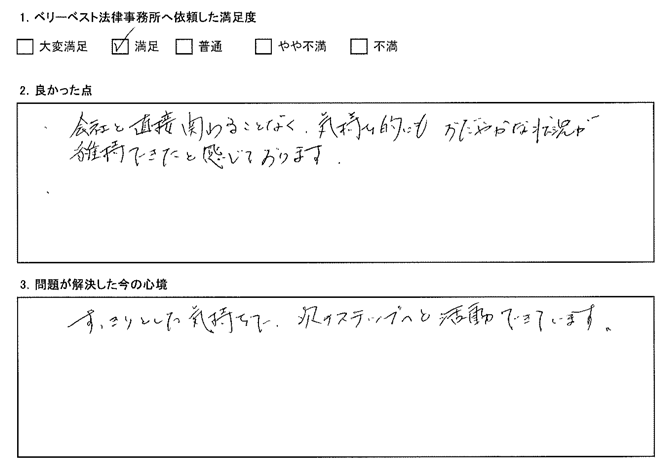 1. ベリーベスト法律事務所へ依頼した満足度
□ 大変満足 ☑ 満足 □ 普通 □ やや不満 □ 不満
2. 良かった点
・ 会社と直接関わることなく、気持ち的にもおだやかな状況が
維持できたと感じております。
・
3. 問題が解決した今の心境
すっきりとした気持ちで、次のステップへと活動できています。